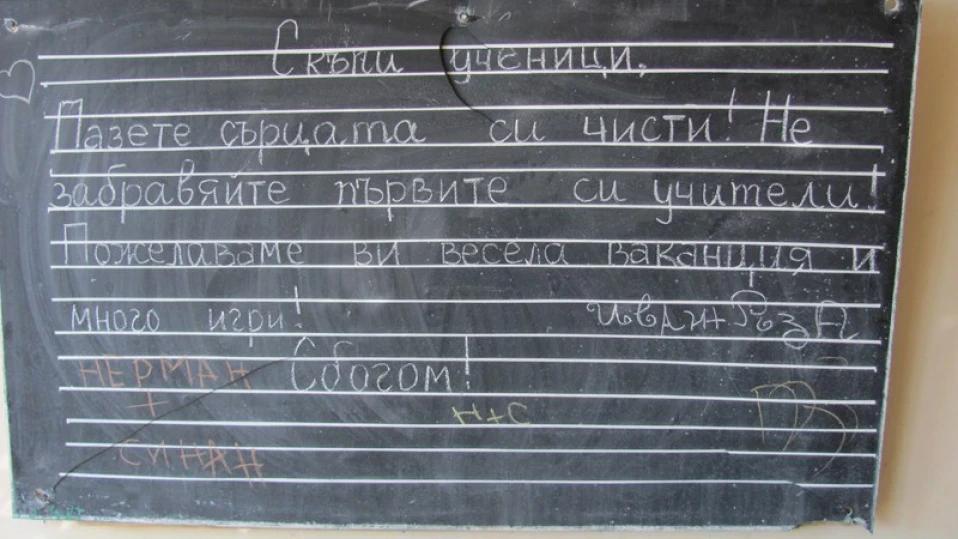 Скъпи ученици,
Пазете сърцата си чисти! Не
забравяйте първите си учители!
Пожелаваме ви весела ваканция и
много игри!
Сбогом!
НЕРМАН
+
СИНАН
Н+С